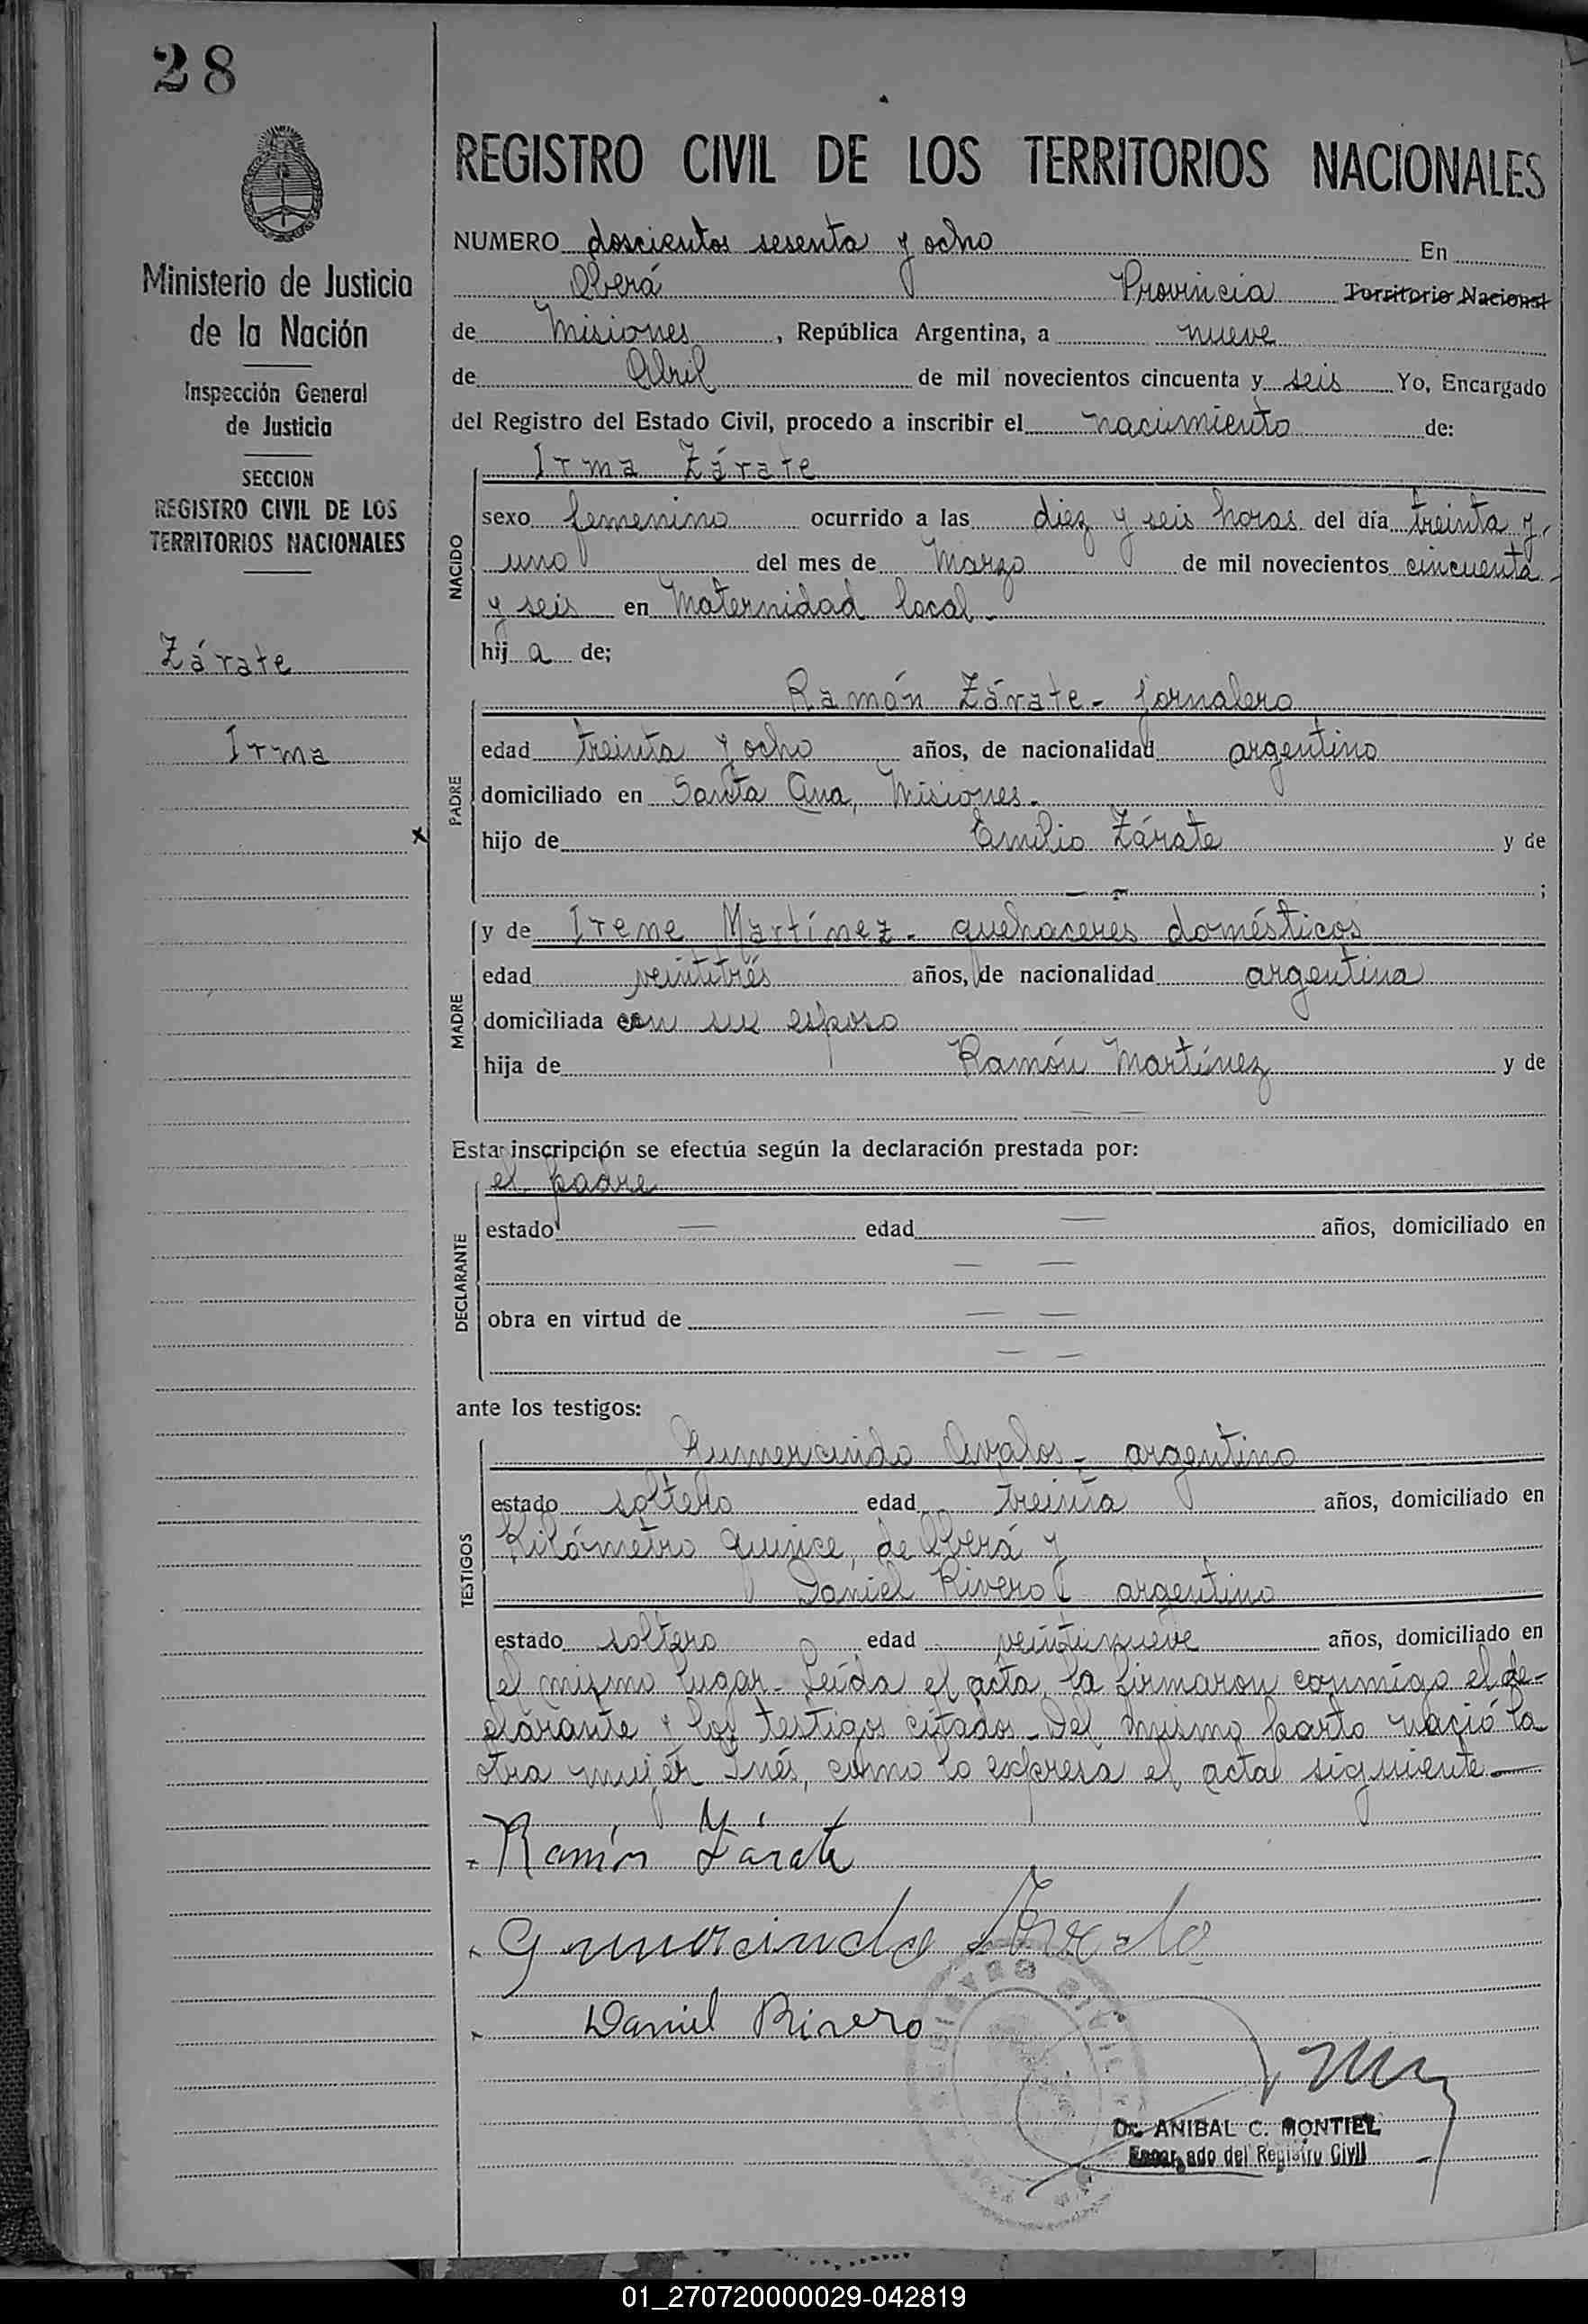 28
Ministerio de Justicia
de la Nación
Inspección General
de Justicia
SECCION
REGISTRO CIVIL DE LOS
TERRITORIOS NACIONALES
Zárate
Irma
REGISTRO CIVIL DE LOS TERRITORIOS NACIONALES
NUMERO doscientos sesenta y ocho En
Oberá Provincia Territorio Nacional
de Misiones, República Argentina, a nueve
de Abril de mil novecientos cincuenta y seis Yo, Encargado
del Registro del Estado Civil, procedo a inscribir el nacimiento de:
NACIDO
Irma Zárate
sexo femenino ocurrido a las diez y seis horas del día treinta y
uno del mes de Marzo de mil novecientos cincuenta
y seis en Maternidad local.
hija de;
PADRE
Ramón Zárate - jornalero
edad treinta y ocho años, de nacionalidad argentino
domiciliado en Santa Ana, Misiones.
hijo de Emilio Zárate y de
— — ;
MADRE
y de Irene Martínez - quehaceres domésticos
edad veintitrés años, de nacionalidad argentina
domiciliada con su esposo
hija de Ramón Martínez y de
— —
Esta inscripción se efectúa según la declaración prestada por:
DECLARANTE
el padre
estado — edad — años, domiciliado en
— —
obra en virtud de — —
— —
ante los testigos:
TESTIGOS
Gumercindo Avalos - argentino
estado soltero edad treinta años, domiciliado en
Kilómetro quince, de Oberá y
Daniel Rivero - argentino
estado soltero edad veintinueve años, domiciliado en
el mismo lugar - Leída el acta, la firmaron conmigo el de-
clarante y los testigos citados - Del mismo parto nació la
otra mujer Inés, como lo expresa el acta siguiente —
Ramón Zárate
Gumercindo Avalo
Daniel Rivero
REGISTRO CIVIL
Dr. ANIBAL C. MONTIEL
Encargado del Registro Civil
01_270720000029-042819